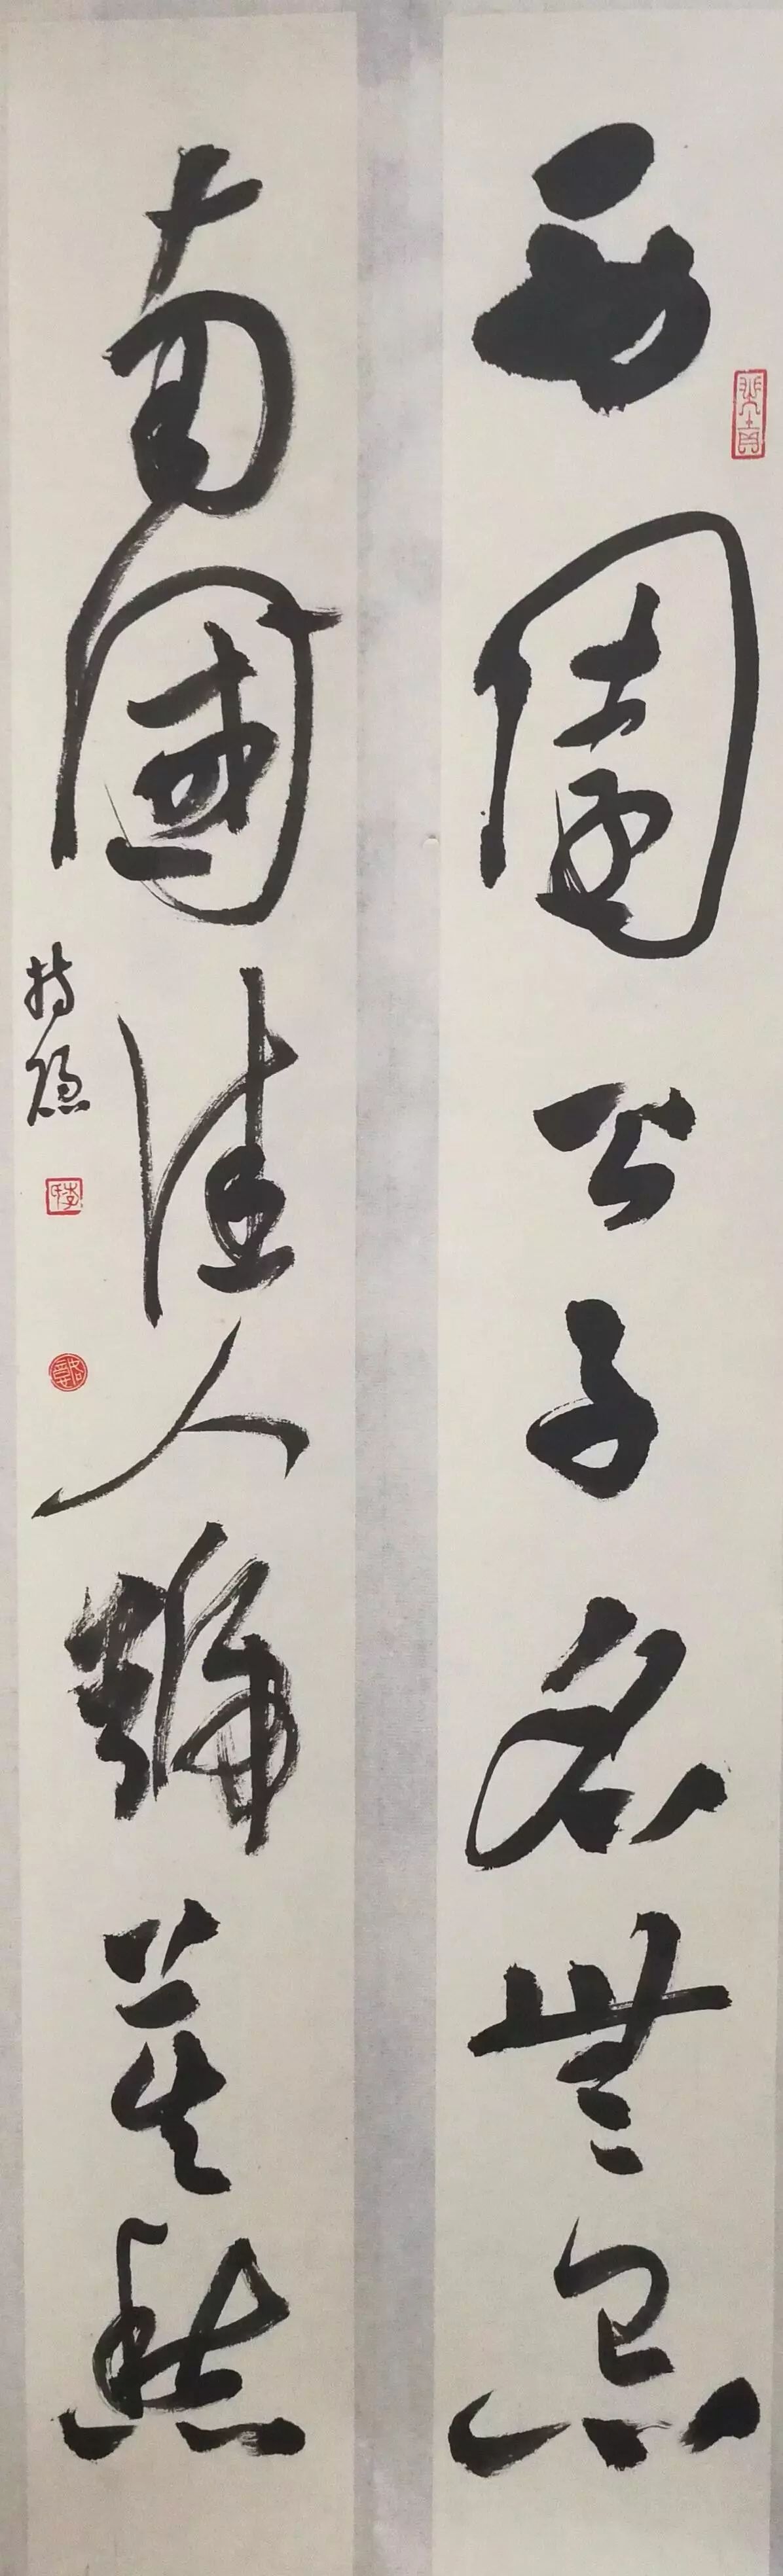 西園公子名無忌
南國佳人號莫愁